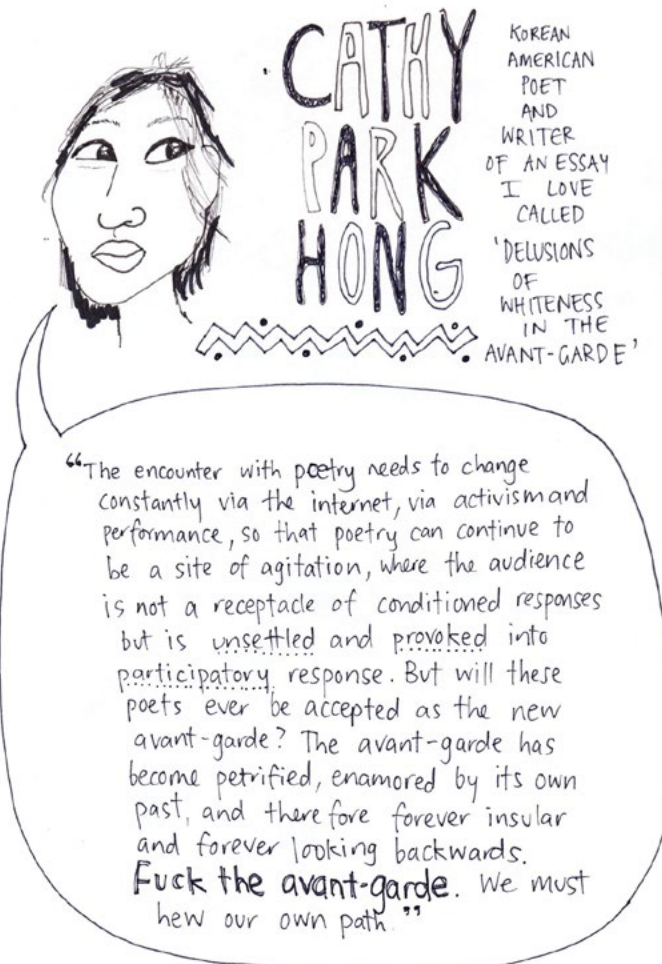 CATHY
PARK
HONG
KOREAN
AMERICAN
POET
AND
WRITER
OF AN ESSAY
I LOVE
CALLED
'DELUSIONS
OF
WHITENESS
IN THE
AVANT-GARDE'
“The encounter with poetry needs to change
constantly via the internet, via activism and
performance, so that poetry can continue to
be a site of agitation, where the audience
is not a receptacle of conditioned responses
but is unsettled and provoked into
participatory response. But will these
poets ever be accepted as the new
avant-garde? The avant-garde has
become petrified, enamored by its own
past, and therefore forever insular
and forever looking backwards.
Fuck the avant-garde. We must
hew our own path.”